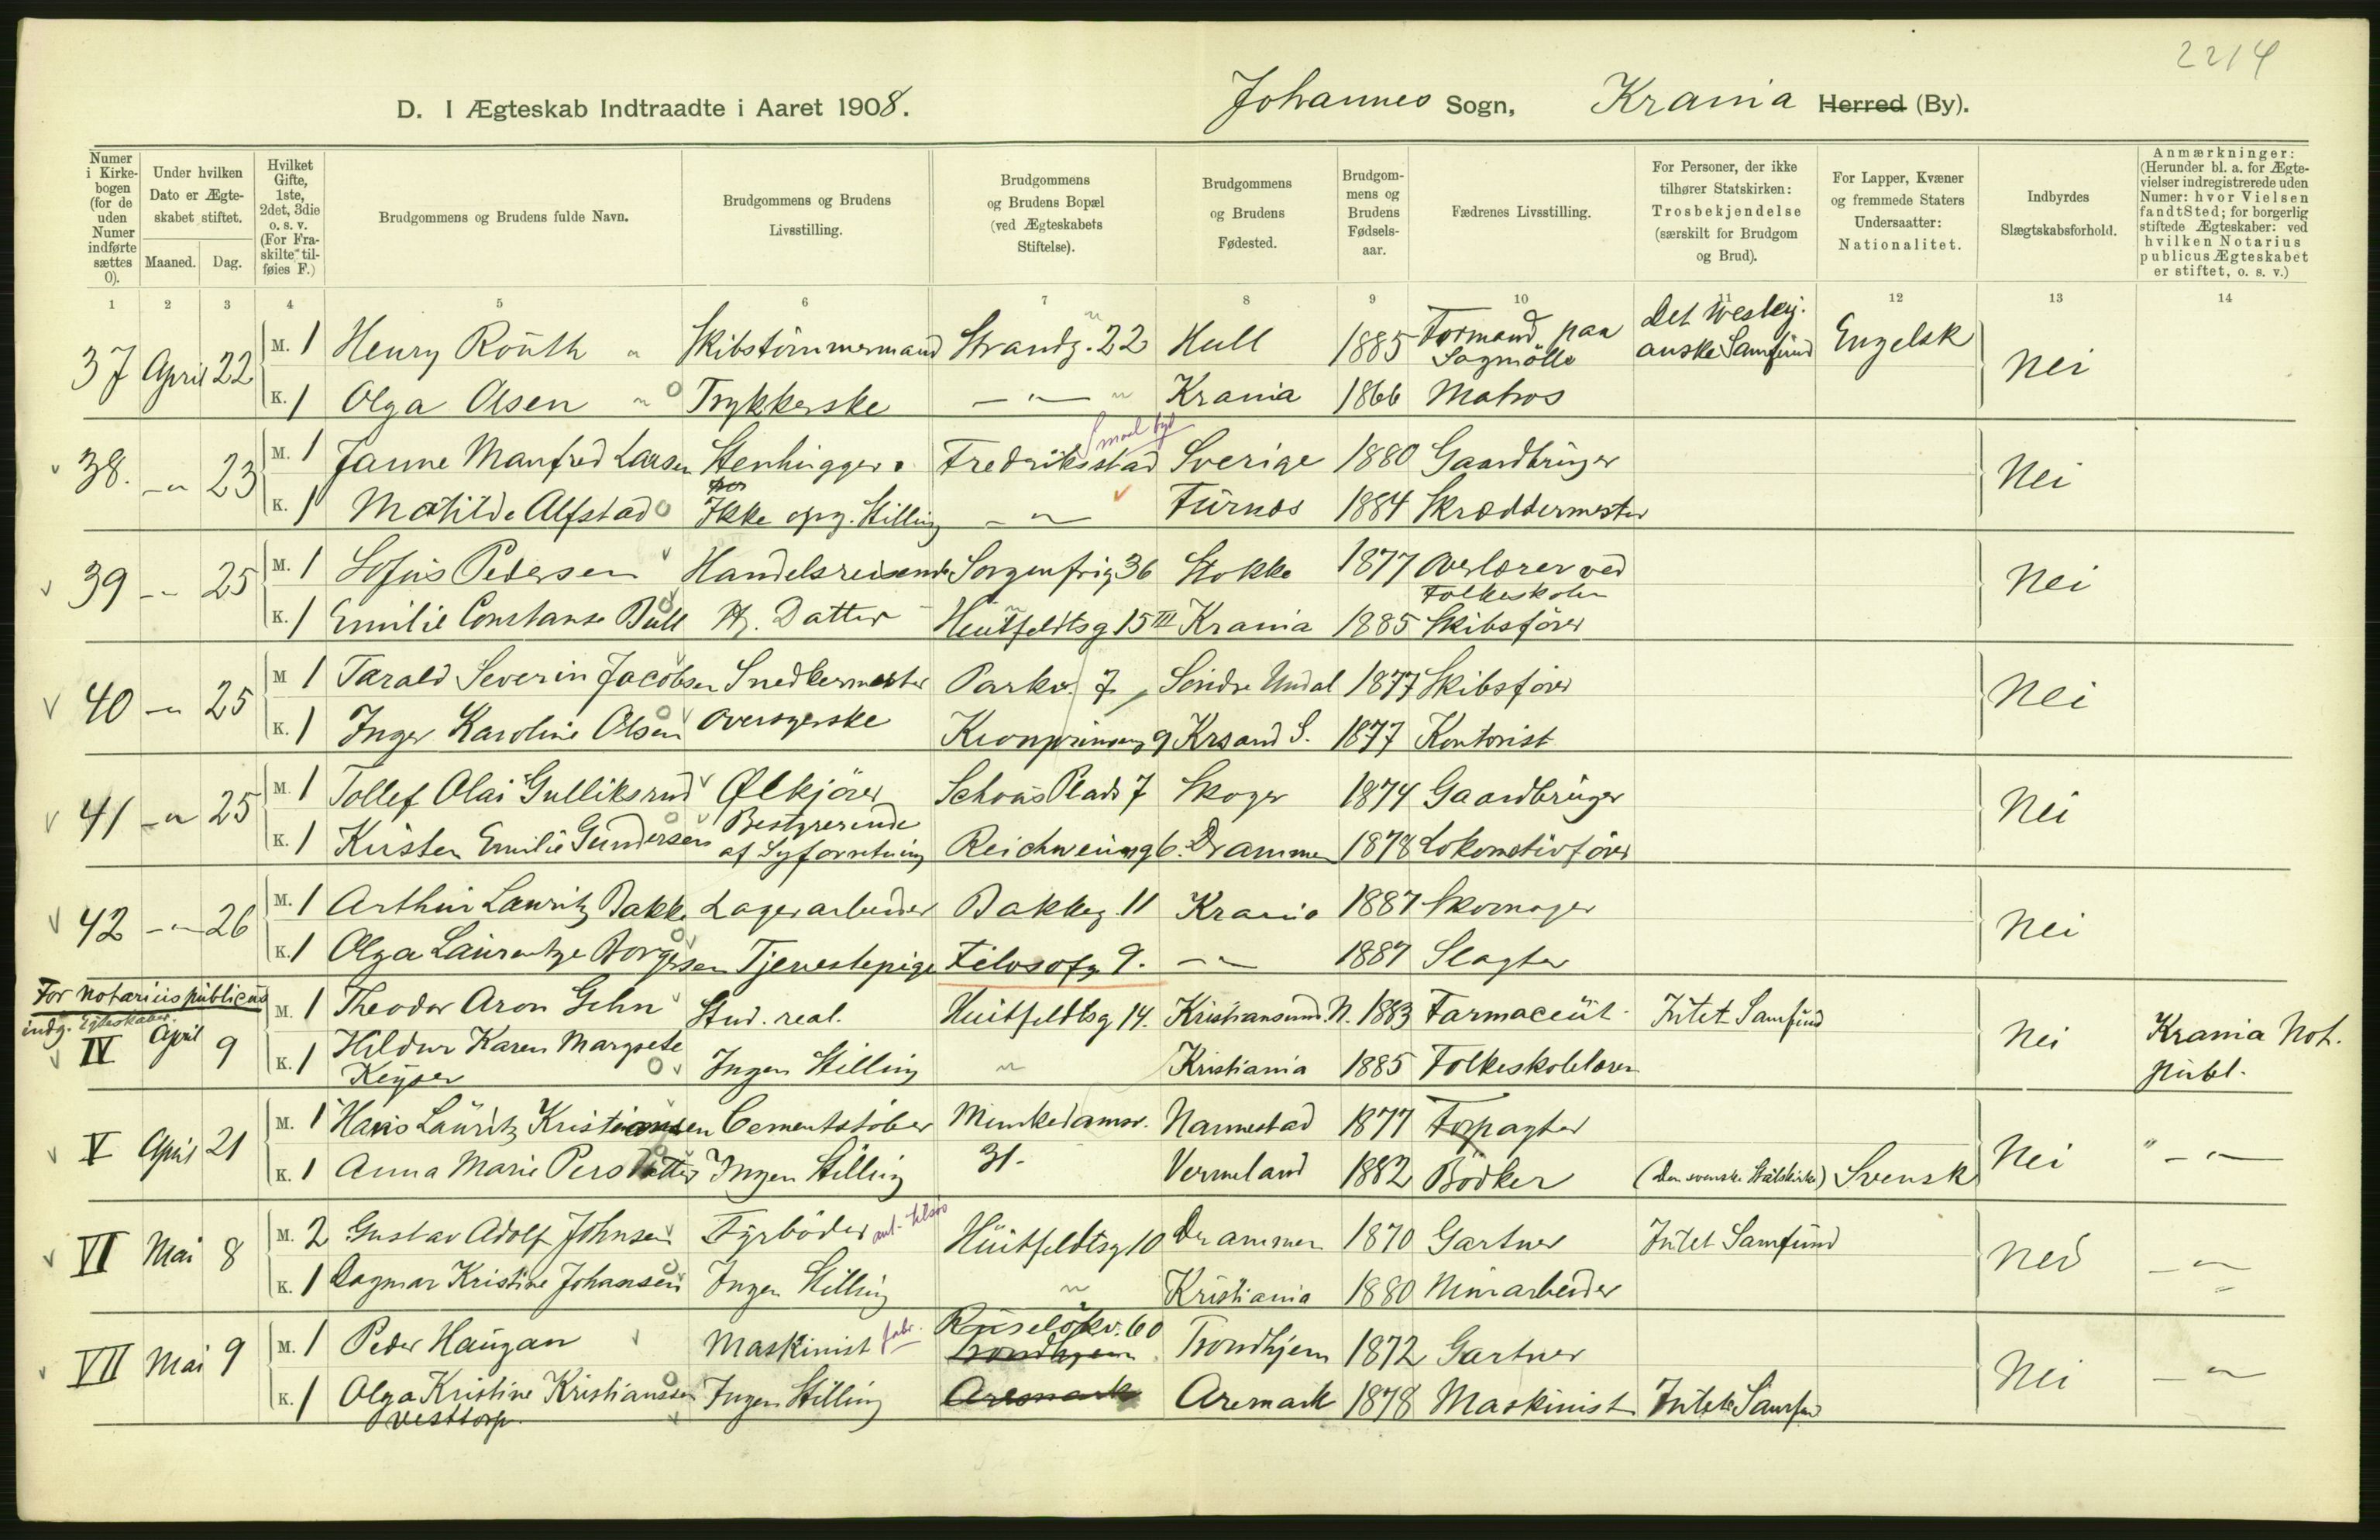 2214
D. I Ægteskab Indtraadte i Aaret 1908. Johannes Sogn, Krania Herred (By).
Numer i Kirkebogen (for de uden Numer indførte sættes 0). Under hvilken Dato er Ægteskabet stiftet. Maaned. Dag. Hvilket Gifte, 1ste, 2det, 3die o. s. v. (For Fraskilte tilføies F.) Brudgommens og Brudens fulde Navn. Brudgommens og Brudens Livsstilling. Brudgommens og Brudens Bopæl (ved Ægteskabets Stiftelse). Brudgommens og Brudens Fødested. Brudgommens og Brudens Fødselsaar. Fædrenes Livsstilling. For Personer, der ikke tilhører Statskirken: Trosbekjendelse (særskilt for Brudgom og Brud). For Lapper, Kvæner og fremmede Staters Undersaatter: Nationalitet. Indbyrdes Slægtskabsforhold. Anmærkninger: (Herunder bl. a. for Ægtevielser indregistrerede uden Numer: hvor Vielsen fandt Sted; for borgerlig stiftede Ægteskaber: ved hvilken Notarius publicus Ægteskabet er stiftet, o. s. v.)
1 2 3 4 5 6 7 8 9 10 11 12 13 14
37 April 22 M. 1 Henry Routh Skibstømmermand Strandg. 22 Hull 1885 Formand paa Sagmölle Det Wesleyanske Samfund Engelsk Nei
K. 1 Olga Olsen Trykkerske — " — Krania 1866 Matros
38. — " 23 M. 1 Janne Manfred Larsen Stenhugger Fredriksstad Sverige 1880 Gaardbruger Nei
K. 1 Matilde Alfstad Ikke opg. Stilling — " — Furnes 1884 Skræddermester
39 — " 25 M. 1 Sofus Pedersen Handelsreisende Sorgenfrig 36 Stokke 1877 Overlærer ved Folkeskolen Nei
K. 1 Emilie Constanse Bull Hj. Datter Huitfeldtsg 15 III Krania 1885 Skibsfører
40 — " 25 M 1 Tarald Severin Jacobsen Snedkermester Parkv. 7 Söndre Undal 1877 Skibsfører Nei
K. 1 Inger Karoline Olsen Oversyerske Kronprinseng 9 Krsand S. 1877 Kontorist
41 — " 25 M. 1 Tollef Olai Gulliksrud Ølkjører Schous Plads 7 Skoger 1874 Gaardbruger Nei
K. 1 Kirsten Emilie Gundersen Bestyrerinde af Syforretning Reichweinsg 6. Drammen 1878 Lokomotivfører
42 — " 26 M. 1 Arthur Lauritz Bakke Lagerarbeider Bakkeg. 11 Krania 1887 Skomager Nei
K. 1 Olga Laurentze Borgersen Tjenestepige Filosofg 9. — " — 1887 Slagter
For notarius publicus indg. Egteskaber.
IV April 9 M. 1 Theodor Aron Gehn Stud. real. Huitfeldtsg 14. Kristiansund N. 1883 Farmaceut Intet Samfund Nei Krania Not. publ.
K. 1 Hildur Karen Margrete Keyser Ingen Stilling " Kristiania 1885 Folkeskolelærer
V April 21 M. 1 Hans Lauritz Kristiansen Cementstøber Munkedamsv. 31. Nannestad 1877 Forpagter Nei " — " —
K. 1 Anna Marie Persdatter Ingen Stilling Vermeland 1882 Bödker (Den svenske Statskirke) Svensk
VI Mai 8 M. 2 Gustav Adolf Johnsen Fyrbøder Huitfeldtsg 10 Drammen 1870 Gartner Intet Samfund Nei — " —
K. 1 Dagmar Kristine Johansen Ingen Stilling " Kristiania 1880 Murarbeider
VII Mai 9 M. 1 Peder Haugan Maskinist fabr. Ruseløkv. 60 Trondhjem Trondhjem 1872 Gartner Nei — " —
K. 1 Olga Kristine Kristianssen Vesttorp Ingen Stilling Aremark Aremark 1878 Maskinist Intet Samfund